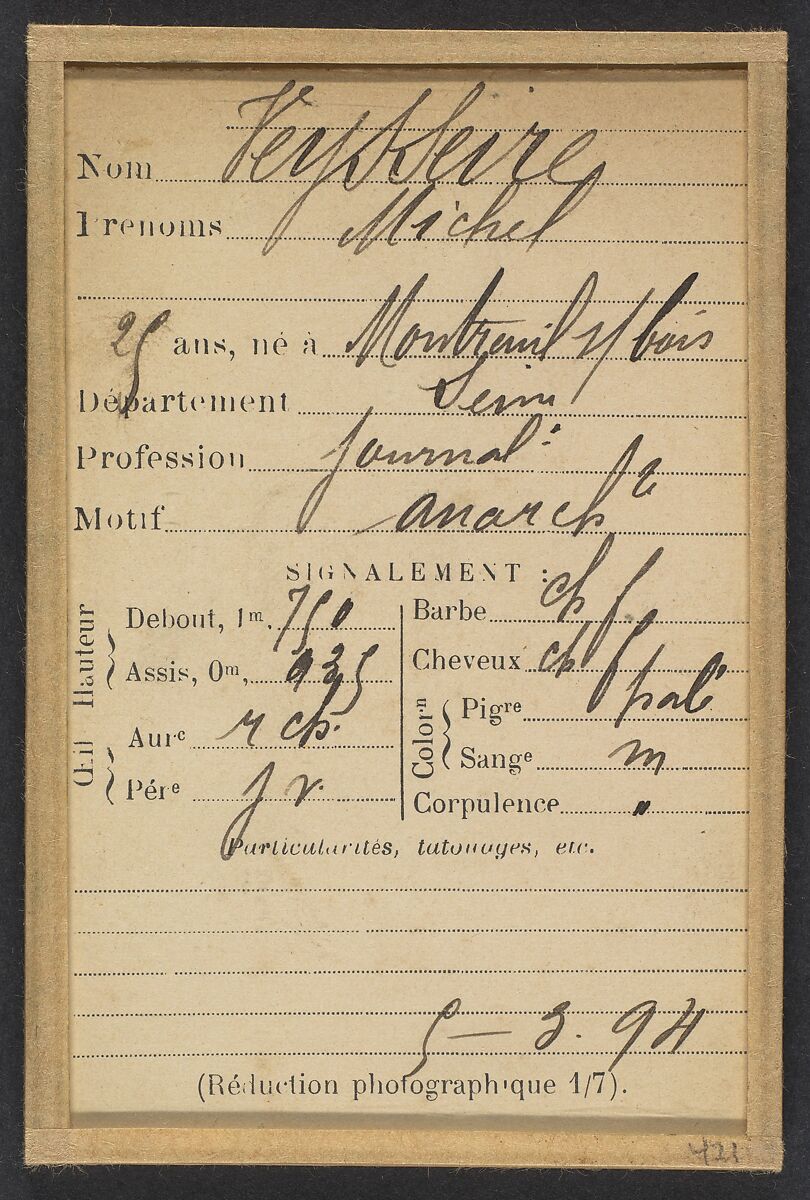 Nom Veysseire
Prénoms Michel
25 ans, né à Montreuil s/ bois
Département Seine
Profession journal.
Motif anarch
SIGNALEMENT :
Hauteur
Debout, 1m, 750
Assis, 0m, 935
Œil
Aure r ch.
Pére j v.
Barbe ch f
Cheveux ch f
Colorn
Pigre
Sange m
Corpulence "
Particularités, tatouages, etc.
5 — 3. 94
(Réduction photographique 1/7).
421